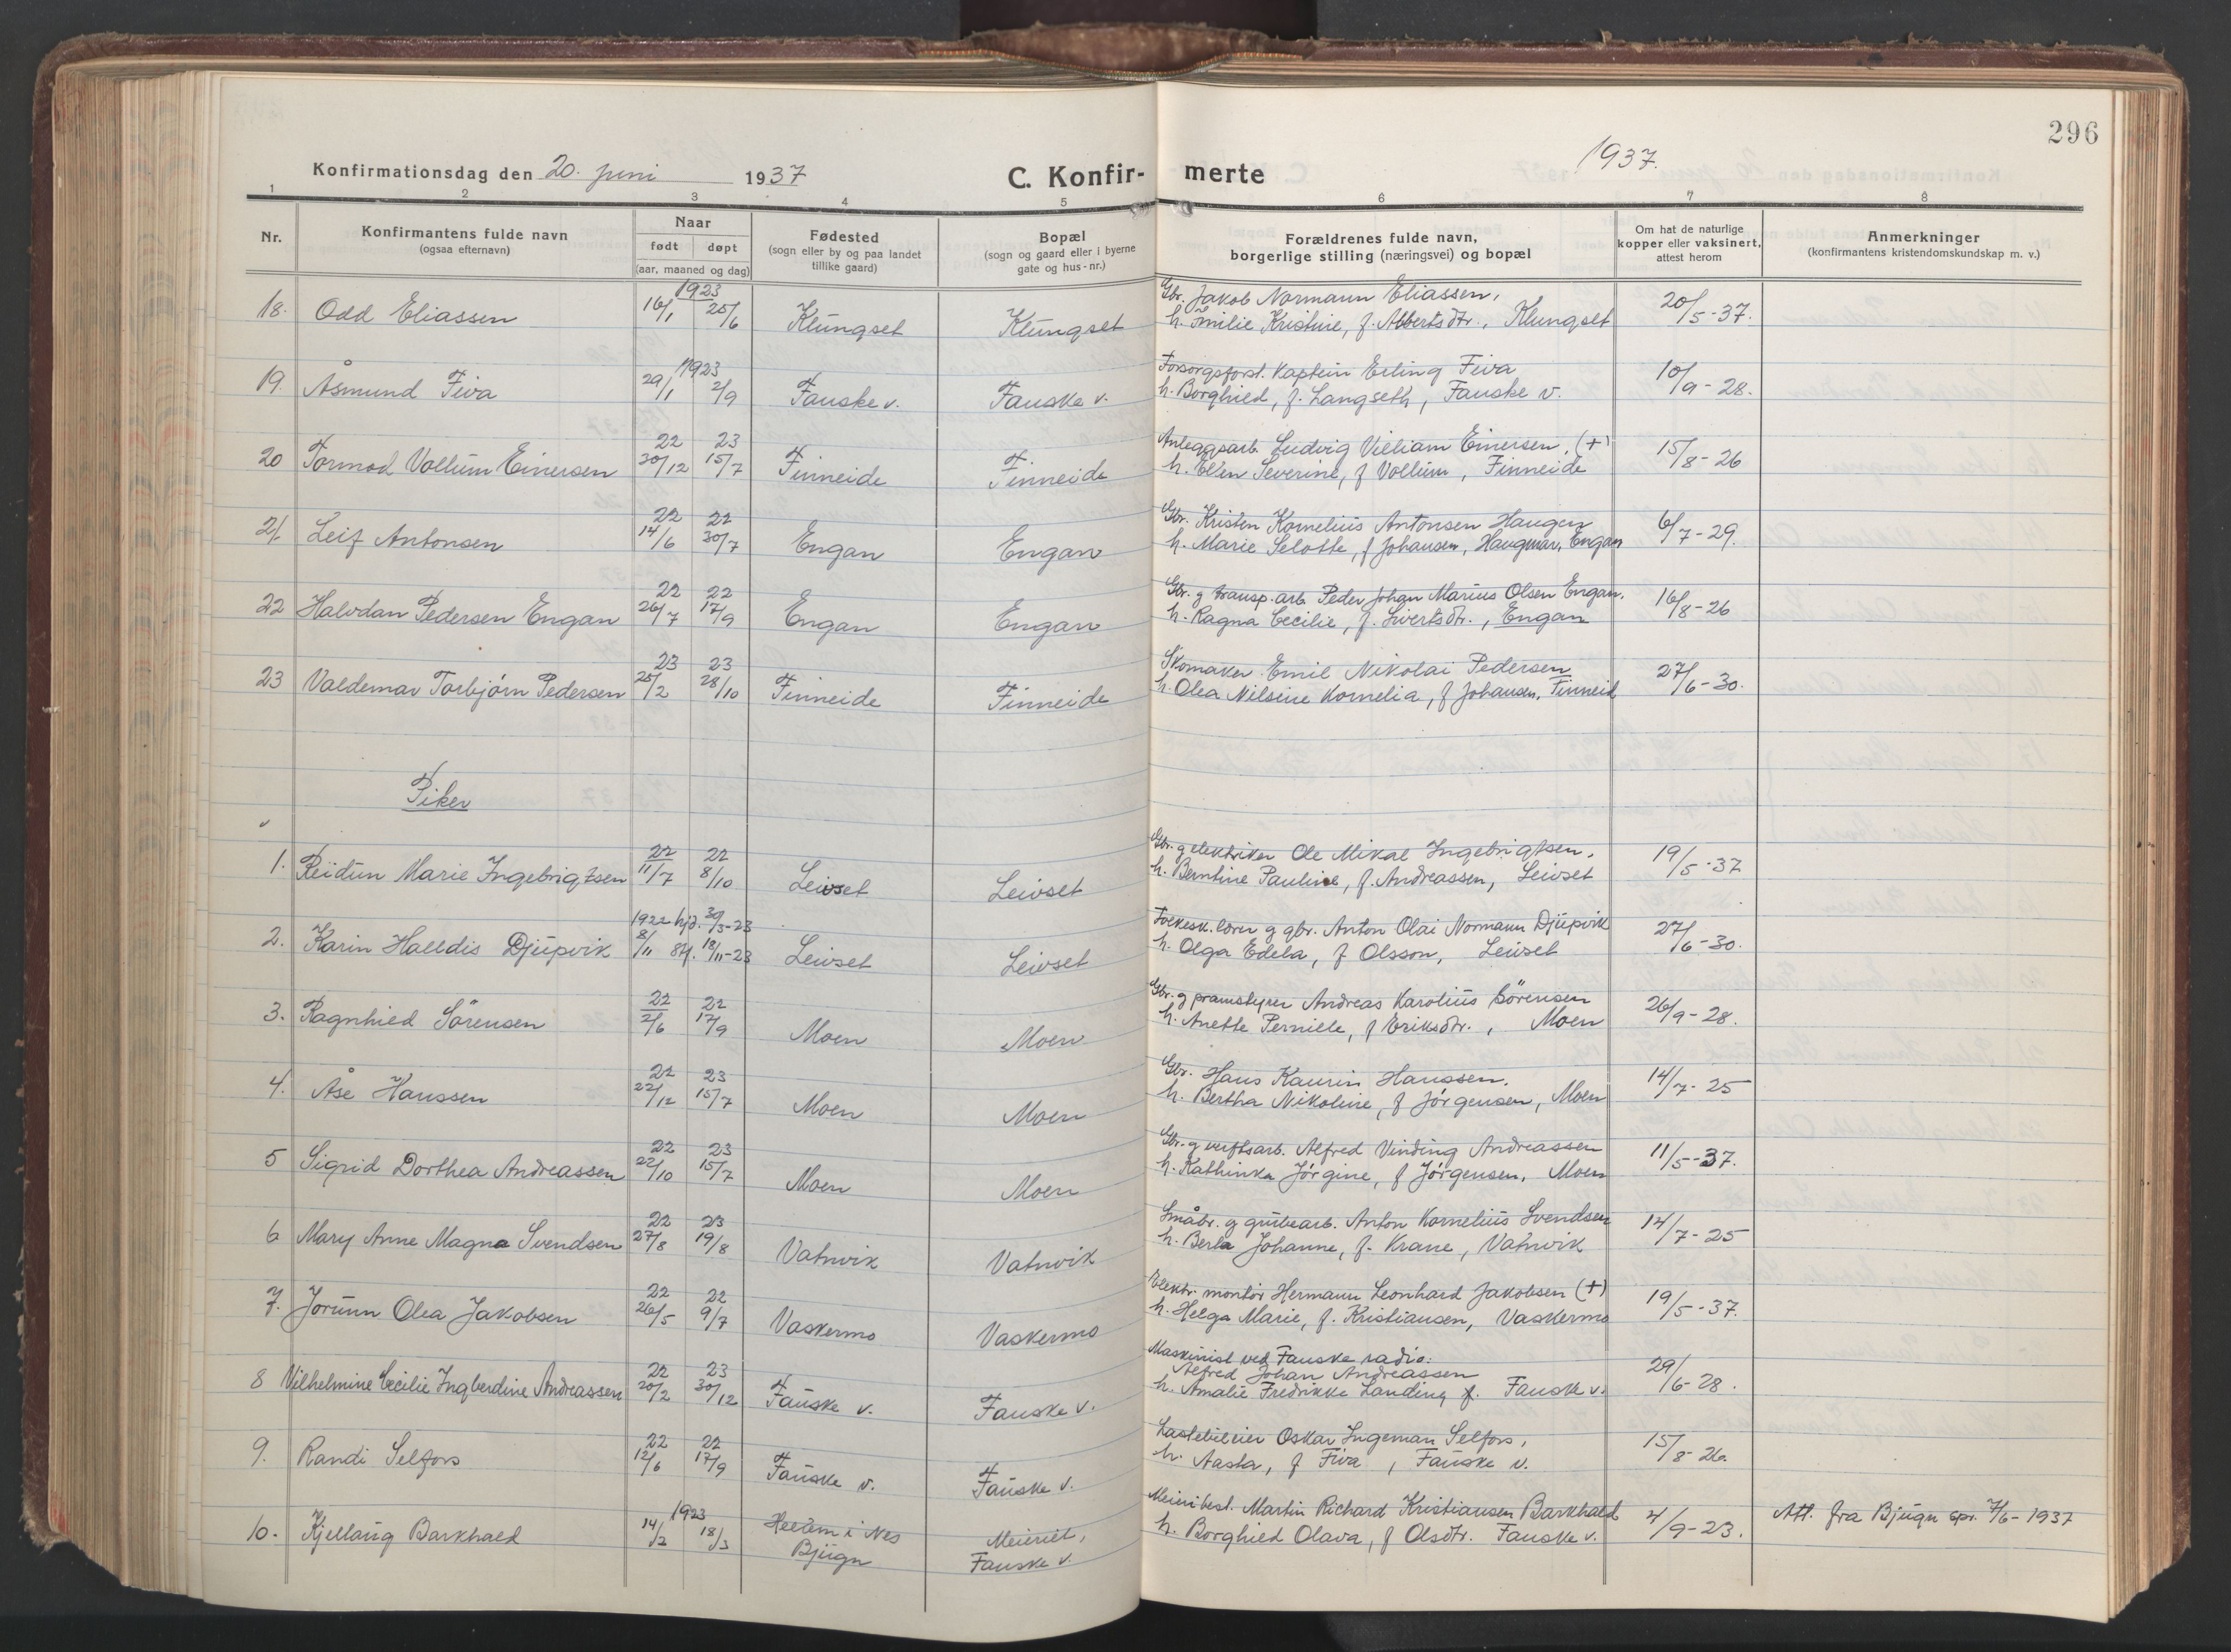 296
Konfirmationsdag den 20. juni 1937
C. Konfir-merte
1937.
1 2 3 4 5 6 7 8
Nr.
Konfirmantens fulde navn
(ogsaa efternavn)
Naar
født døpt
(aar, maaned og dag)
Fødested
(sogn eller by og paa landet
tillike gaard)
Bopæl
(sogn og gaard eller i byerne
gate og hus-nr.)
Forældrenes fulde navn,
borgerlige stilling (næringsvei) og bopæl
Om hat de naturlige
kopper eller vaksinert,
attest herom
Anmerkninger
(konfirmantens kristendomskundskap m. v.)
18. Odd Eliassen 1923 16/1 25/6 Klungset Klungset
Gbr. Jakob Normann Eliassen,
h. Emilie Kristine, f. Albertsdtr., Klungset 20/5-37.
19. Åsmund Fiva 1923 29/1 2/9 Fauske v. Fauske v.
Forsorgsforst. Kaptein Erling Fiva
h. Borghild, f. Langseth, Fauske v. 10/9-28.
20 Tormod Vollum Einersen 22 30/12 23 15/7 Finneide Finneide
Anleggsarb. Ludvig Villiam Einersen, (+)
h. Ellen Severine, f Vollum, Finneide 15/8-26
21. Leif Antonsen 22 14/6 22 30/7 Engan Engan
Gbr. Kristen Kornelius Antonsen Haugen
h. Marie Selotte, f Johansen, Haugmar, Engan 6/7-29.
22 Halvdan Pedersen Engan 22 26/7 22 17/9 Engan Engan
Gbr. g transp.arb. Peder Johan Marius Olsen Engan,
h. Ragna Cecilie, f. Sivertsdtr., Engan 16/8-26
23 Valdemar Torbjørn Pedersen 23 25/2 23 28/10 Finneide Finneide
Skomaker Emil Nikolai Pedersen
h. Olea Nilsine Kornelia, f Johansen, Finneid 27/6-30.
Piker
1. Reidun Marie Ingebrigtsen 22 11/7 22 8/10 Leivset Leivset
Gbr. g elektriker Ole Mikal Ingebrigtsen,
h. Berntine Pauline, f. Andreassen, Leivset 19/5-37
2. Karin Halldis Djupvik 1922 8/11 hjd. 30/3-23 stf. 18/11-23 Leivset Leivset
Folkesk.lærer g gbr. Anton Olai Normann Djupvik
h. Olga Edela, f Olsson, Leivset 27/6-30.
3. Ragnhild Sörensen 22 2/6 22 17/9 Moen Moen
Gbr. g pramstyrer Andreas Karolius Sörensen
h. Anette Pernille, f Eriksdtr., Moen 26/9-28.
4. Åse Hanssen 22 22/12 23 15/7 Moen Moen
Gbr. Hans Kaurin Hanssen,
h. Bertha Nikoline, f Jørgensen, Moen 14/7-25
5 Sigrid Dorthea Andreassen 22 22/10 23 15/7 Moen Moen
Gbr. g verftsarb. Alfred Vinding Andreassen
h. Kathinka Jørgine, f Jørgensen, Moen 11/5-37.
6 Mary Anne Magna Svendsen 22 27/8 23 19/8 Vatnvik Vatnvik
Småbr. g grubearb. Anton Kornelius Svendsen
h. Berla Johanne, f. Krane, Vatnvik 14/7-25
7. Jorunn Olea Jakobsen 22 26/5 22 9/7 Vaskermo Vaskermo
Elektr. montör Hermann Leonhard Jakobsen (+)
h. Helga Marie, f. Kristiansen, Vaskermo 19/5-37.
8 Vilhelmine Cecilie Ingberdine Andreassen 22 20/2 23 30/12 Fauske v. Fauske v.
Maskinist ved Fauske radio:
Alfred Johan Andreassen
h. Amalie Fredrikke Landing f. Fauske v. 29/6-28.
9. Randi Selfors 22 12/6 22 17/9 Fauske v. Fauske v.
Lastebileier Oskar Ingeman Selfors,
h. Aasta, f Fiva, Fauske v. 15/8-26.
10. Kjellaug Barkhald 1923 14/2 18/3 Hellem i Nes
Bjugn
Meieriet,
Fauske v.
Meieribest. Martin Richard Kristiansen Barkhald
h. Borghild Olava, f Olsdtr. Fauske v. 4/9-23. Att. fra Bjugn spr. 7/6-1937